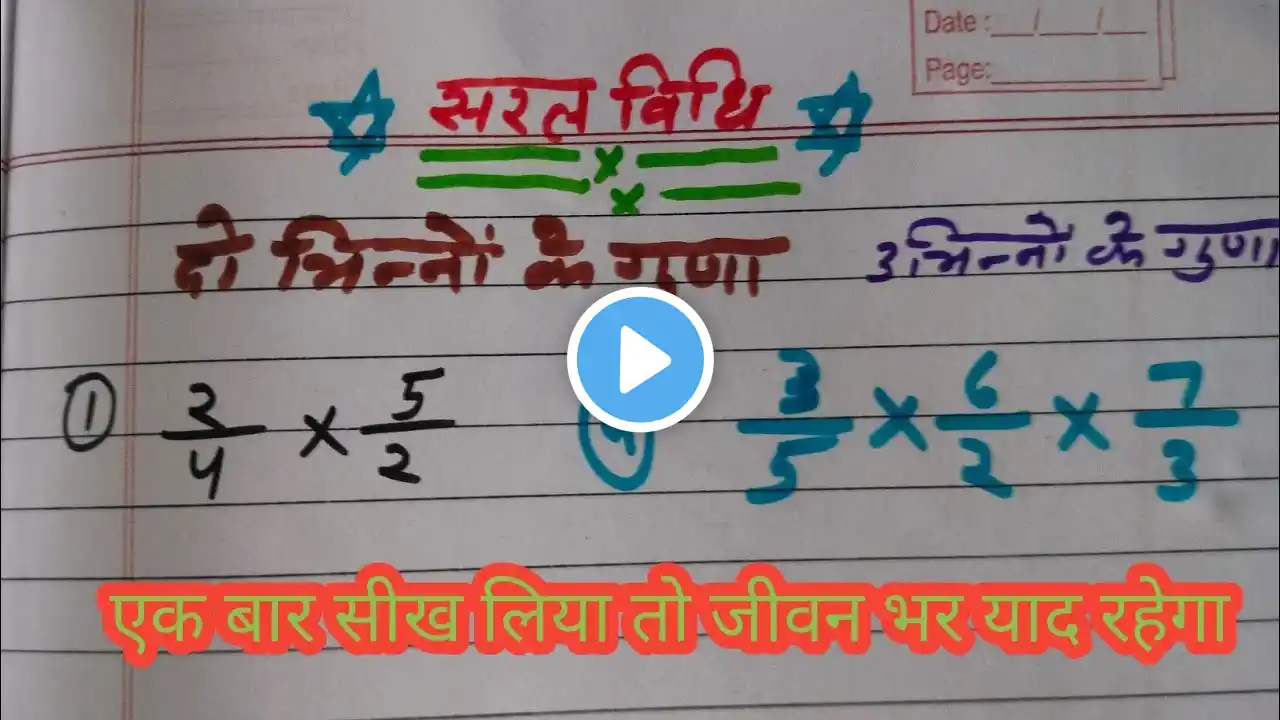 Date :__/__/__
Page:
सरल विधि
दो भिन्नों के गुणा
3 भिन्नों के गुणा
① 2/4 × 5/2
3/5 × 6/2 × 7/3
एक बार सीख लिया तो जीवन भर याद रहेगा